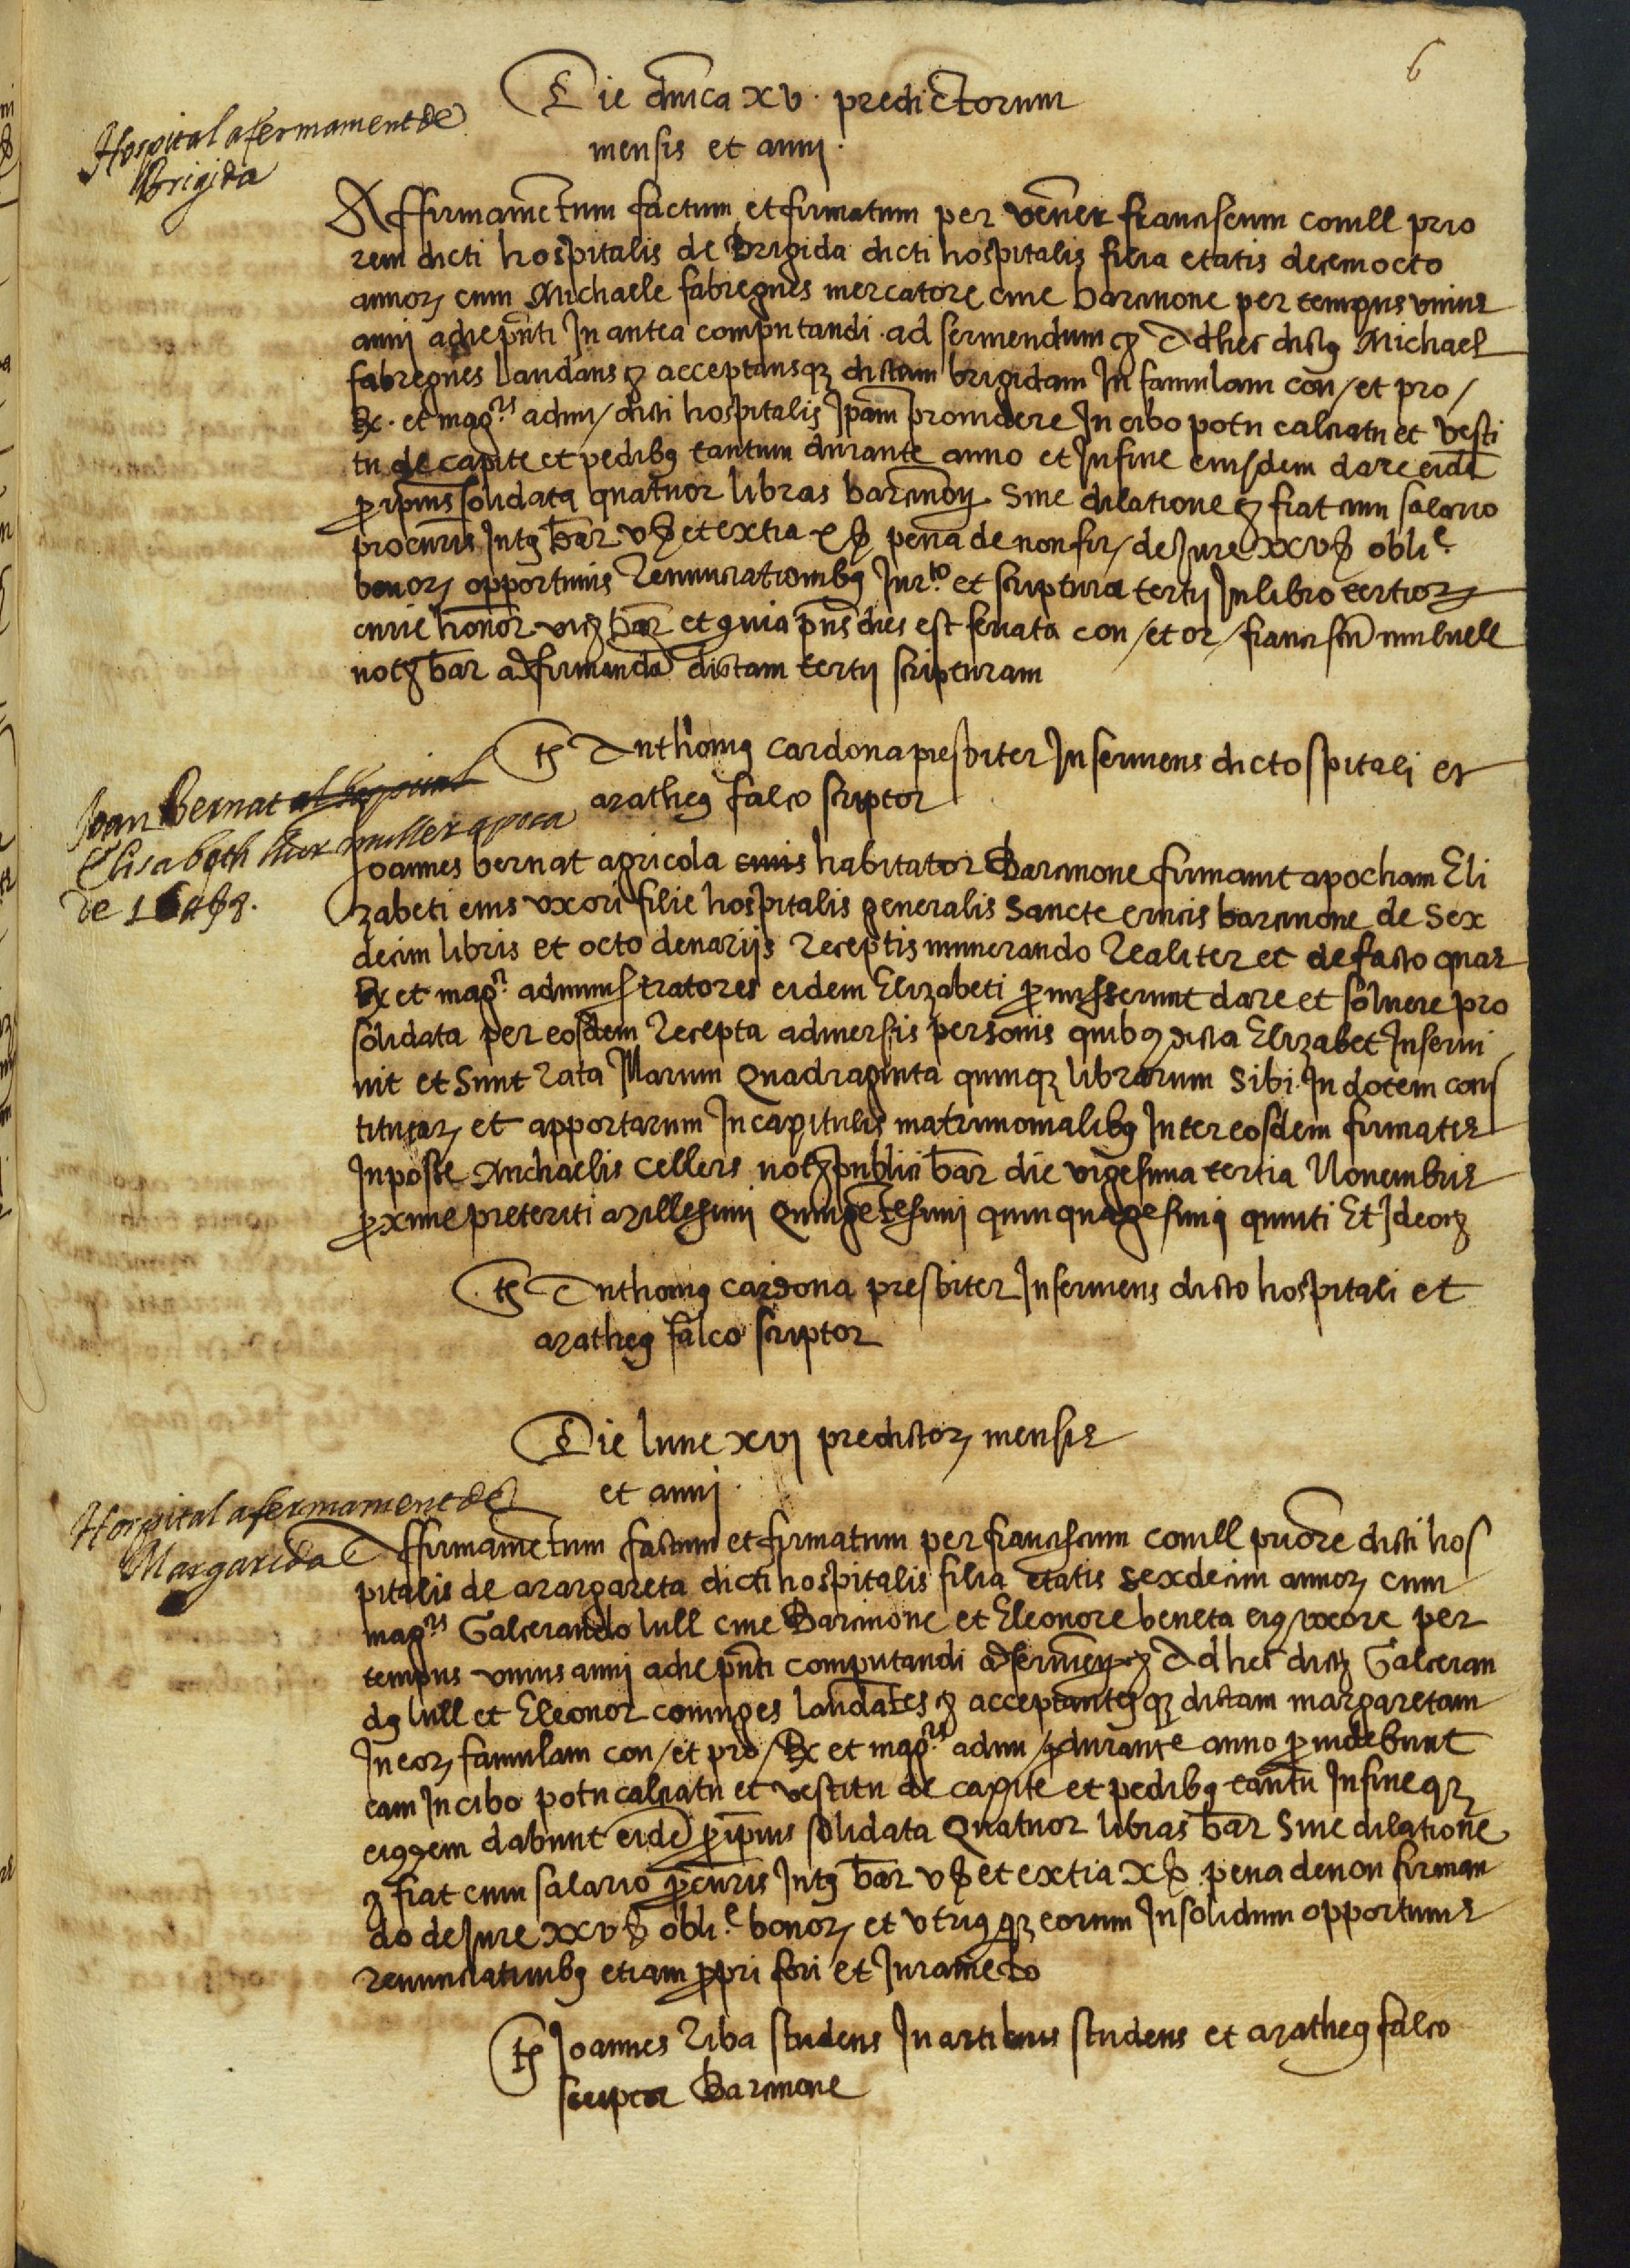 6
Die dnica xv. predictorum
mensis et anni.
Hospital afermament de
Brigida
Affirmamentum factum et firmatum per vener franciscum conill prio
rem dicti hospitalis de Brigida dicti hospitalis filia etatis decemocto
annor cum Michaele fabregues mercatore cive barcinone per tempus unius
anni a die pnti In antea computandi. ad serviendum Ad hec dictus Michael
fabregues laudans acceptansq dictam brigidam In famulam con/et pro/
Rx. et magcis admi/dicti hospitalis Ipam providere In cibo potu calciatu et vesti
tu de capite et pedibus tantum durante anno et In fine eiusdem dare eidem
pro ipius solidata quatuor libras barcinon. Sine dilatione fiat cum salario
procuris Intus bar v ß et extra x ß pena de non fir/ de Jure xxv ß oblie.
bonor opportunis Renunciationibus Jurto. et scriptura tertij In libro tertior
curie honor vic bar et quia pns dies est feriata con/et or/franciscu mulnell
not bar ad firmanda dictam tertij scripturam
ts Anthonius cardona presbiter In serviens dicto spitali et
matheus falco scriptor
Joan Bernat al hospital
Elisabeth sa muller apoca
de 16 ℔ 8.
Joannes bernat agricola civis habitator Barcinone firmavit apocham Eli
zabeti eius uxori filie hospitalis generalis Sancte crucis barcinone de Sex
decim libris et octo denarijs Receptis numerando Realiter et de facto quas
Rx et magci. administratores eidem Elizabeti promisserunt dare et solvere pro
solidata per eosdem Recepta a diversis personis quibus dicta Elizabet Inservi
vit et Sunt Rata Illarum Quadraginta quinq librarum Sibi In dotem cons
titutar et apportarum In capitulis matrimonialibus Inter eosdem firmatis
In posse Michaelis cellers not publici bar die vigesima tertia Novembris
proxime preteriti Millesimi Quingetesimi quinquagesimi quinti Et Ideo
ts Anthonius cardona presbiter In serviens dicto hospitali et
matheus falco scriptor
Die lune xvj predictor mensis
et anni.
Hospital afermament de
Margarida
Affirmamentum factum et firmatum per franciscum conill priore dicti hos
pitalis de Margareta dicti hospitalis filia etatis sexdecim annor cum
magcis Galcerando lull cive Barcinone et Eleonore beneta eius uxore per
tempus unius anni a die pnti computandi ad servien Ad hec dicti Galceran
dus lull et Eleonor coniuges laudates acceptantesq dictam margaretam
In eor famulam con/et pro/Rx et magcis admi/ durante anno providebunt
eam In cibo potu calciatu et vestitu de capite et pedibus tantu In fineq
eiusdem dabunt eide pro ipius solidata Quatuor libras bar Sine dilatione
fiat cum salario procuris Intus bar v ß et extra x ß pena de non firman
do de Jure xxv ß oblie bonor et utriusq eorum In solidum opportunis
renunciationibus etiam proprii fori et Juramento
ts Joannes Riba studens In artibus studens et matheus falco
scriptor Barcinone